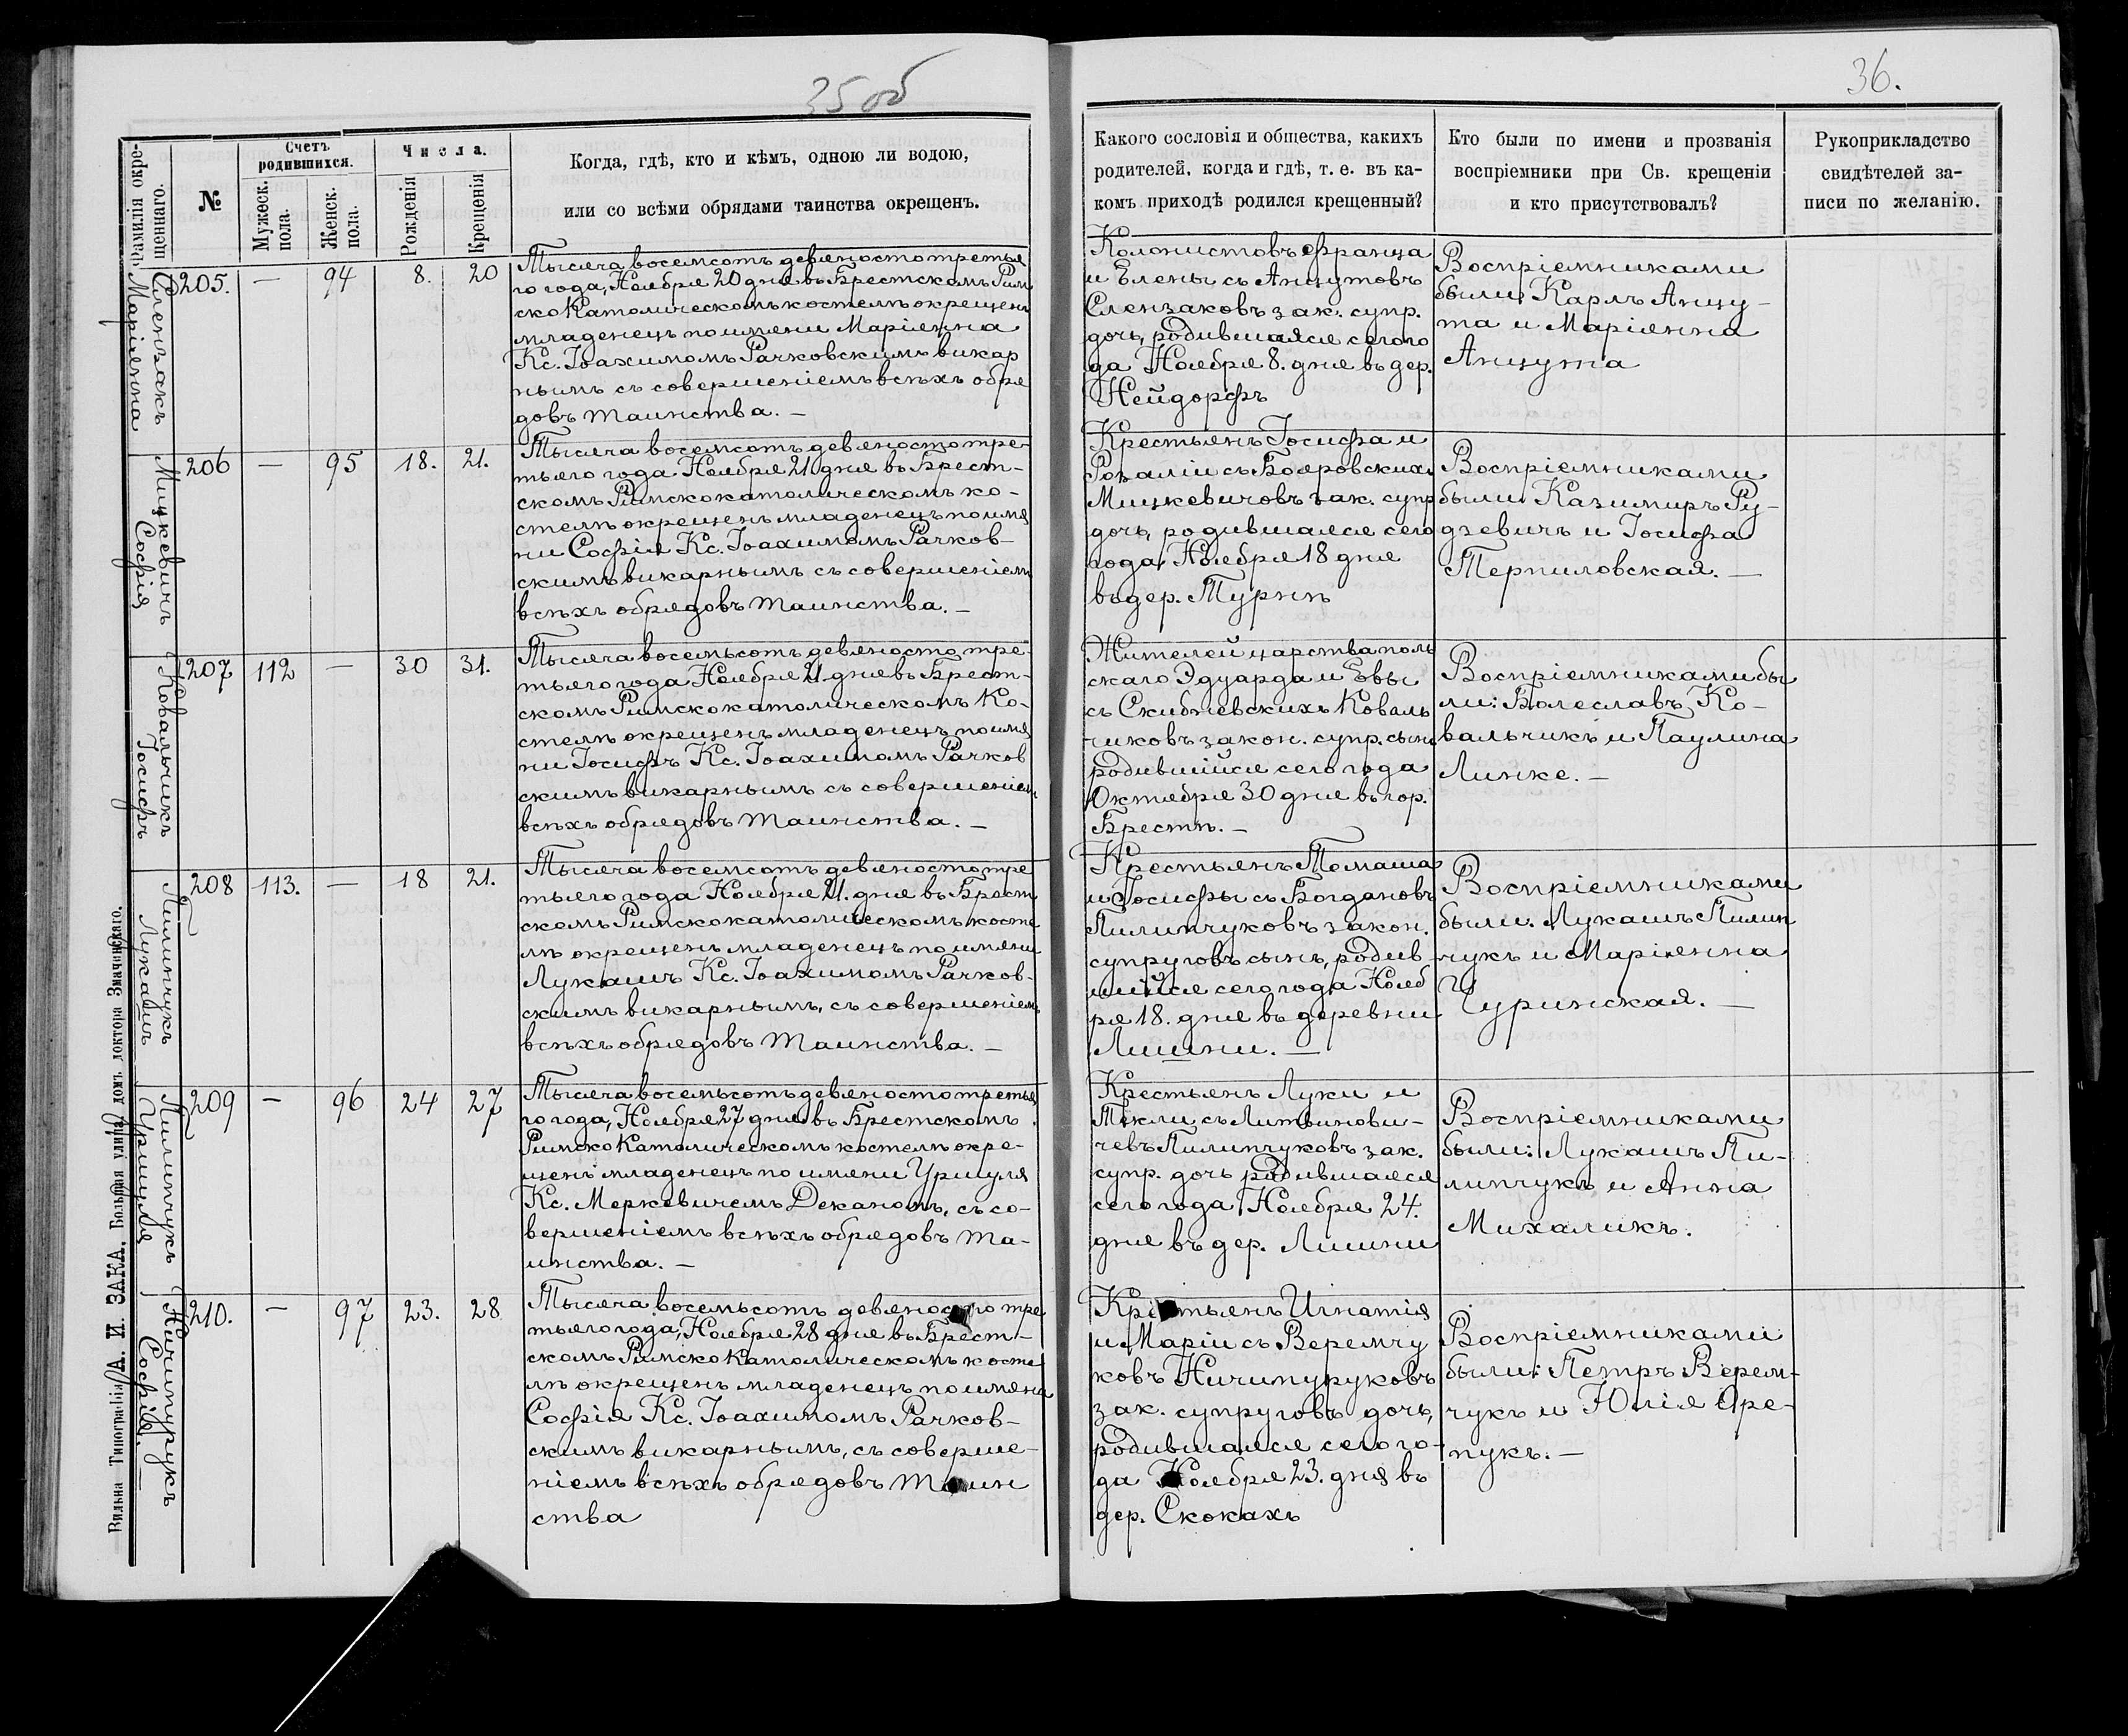 35 об
36.
Фамилія окре-
щеннаго.
№
Счетъ
родившихся.
Мужеск.
пола.
Женск.
пола.
Числа.
Рожденія
Крещенія
Когда, гдѣ, кто и кѣмъ, одною ли водою,
или со всѣми обрядами таинства окрещенъ.
Какого сословія и общества, какихъ
родителей, когда и гдѣ, т. е. въ ка-
комъ приходѣ родился крещенный?
Кто были по имени и прозванія
воспріемники при Св. крещеніи
и кто присутствовалъ?
Рукоприкладство
свидѣтелей за-
писи по желанію.
Слензакъ
Маріянна
205.
—
94
8.
20
Тысяча восемсотъ девяносто третья
го года, Ноября 20 дня въ Брестскомъ Рим
ско Католическомъ костелѣ окрещенъ
младенецъ по имени Маріянна
Кс. Іоахимомъ Рачковскимъ викар
нымъ съ совершеніемъ всѣхъ обря
довъ таинства. —
Колонистовъ Франца
и Елены съ Анцутовъ
Слензаковъ зак. супр.
дочь, родившаяся сего го
да Ноября 8. дня въ дер.
Нейдорфъ
Воспріемниками
были: Карлъ Анцу-
та и Маріянна
Анцута
Мицкевичъ
Софія
206
—
95
18.
21.
Тысяча восемсотъ девяносто тре-
тьяго года Ноября 21 дня въ Брест-
скомъ Римскокатолическомъ ко-
стелѣ окрещенъ младенецъ по име
ни Софія Кс. Іоахимомъ Рачков-
скимъ викарнымъ съ совершеніемъ
всѣхъ обрядовъ таинства. —
Крестьянъ Іосифа и
Розаліи съ Бояровскихъ
Мицкевичовъ зак. супр
дочь, родившаяся сего
года Ноября 18 дня
въ дер. Турнѣ
Воспріемниками
были Казимиръ Ру-
дзевичъ и Іосифа
Терпиловская. —
Ковальчикъ
Іосифъ
207
112
—
30
31.
Тысяча восемьсотъ девяносто тре-
тьяго года Ноября 21. дня въ Брест-
скомъ Римскокатолическомъ Ко-
стелѣ окрещенъ младенецъ по име
ни Іосифъ Кс. Іоахимомъ Рачков
скимъ викарнымъ съ совершеніем
всѣхъ обрядовъ таинства. —
Жителей царства поль
скаго Эдуарда и Евы
съ Скибневскихъ Коваль
чиковъ закон. супр. сынъ
родившійся сего года
Октября 30 дня въ гор.
Брестѣ. —
Воспріемниками бы
ли: Болеславъ Ко-
вальчикъ и Паулина
Линке. —
Пилипчукъ
Лукашъ
208
113.
—
18
21.
Тысяча восемсотъ девяносто тре
тьяго года Ноября 21. дня въ Брест
скомъ Римскокатолическомъ косте
лѣ окрещенъ младенецъ по имени
Лукашъ Кс. Іоахимомъ Рачков-
скимъ викарнымъ, съ совершеніемъ
всѣхъ обрядовъ таинства. —
Крестьянъ Томаша
и Іосифы съ Богдановъ
Пилипчуковъ закон.
супруговъ сынъ, родив-
шийся сего года Нояб
ря 18. дня въ деревни
Лишни. —
Воспріемниками
были. Лукашъ Пилип
чукъ и Маріянна
Чуринская. —
Пилипчукъ
Уршуля
209
—
96
24
27
Тысяча восемьсотъ девяносто третья
го года, Ноября 27 дня въ Брестскомъ
Римско Католическомъ костелѣ окре-
щенъ младенецъ по имени Уршуля
Кс. Меркевичемъ Деканомъ, съ со-
вершеніемъ всѣхъ обрядовъ та-
инства. —
Крестьянъ Луки и
Текли съ Литвинови-
чевъ Пилипчуковъ зак.
супр. дочь родившаяся
сего года Ноября 24.
дня въ дер. Лишни
Воспріемниками
были: Лукашъ Пи-
липчукъ и Анна
Михаликъ.
Ничипурукъ
Софія. —
210.
—
97
23.
28
Тысяча восемьсотъ девяносто тре
тьяго года, Ноября 28 дня въ Брест-
скомъ Римско Католическомъ косте
лѣ окрещенъ младенецъ по имени
Софія Кс. Іоахимомъ Рачков-
скимъ викарнымъ, съ соверше-
ніемъ всѣхъ обрядовъ таин
ства
Крестьянъ Игнатія
и Маріи съ Веремчу
ковъ Ничипуруковъ
зак. супруговъ дочь,
родившаяся сего го-
да Ноября 23. дня въ
дер. Скокахъ
Воспріемниками
были: Петръ Верем-
чукъ и Юлія Яре-
пукъ. —
Вильна Типографія А. И. ЗАКА, Большая улица, домъ доктора Змаченскаго.